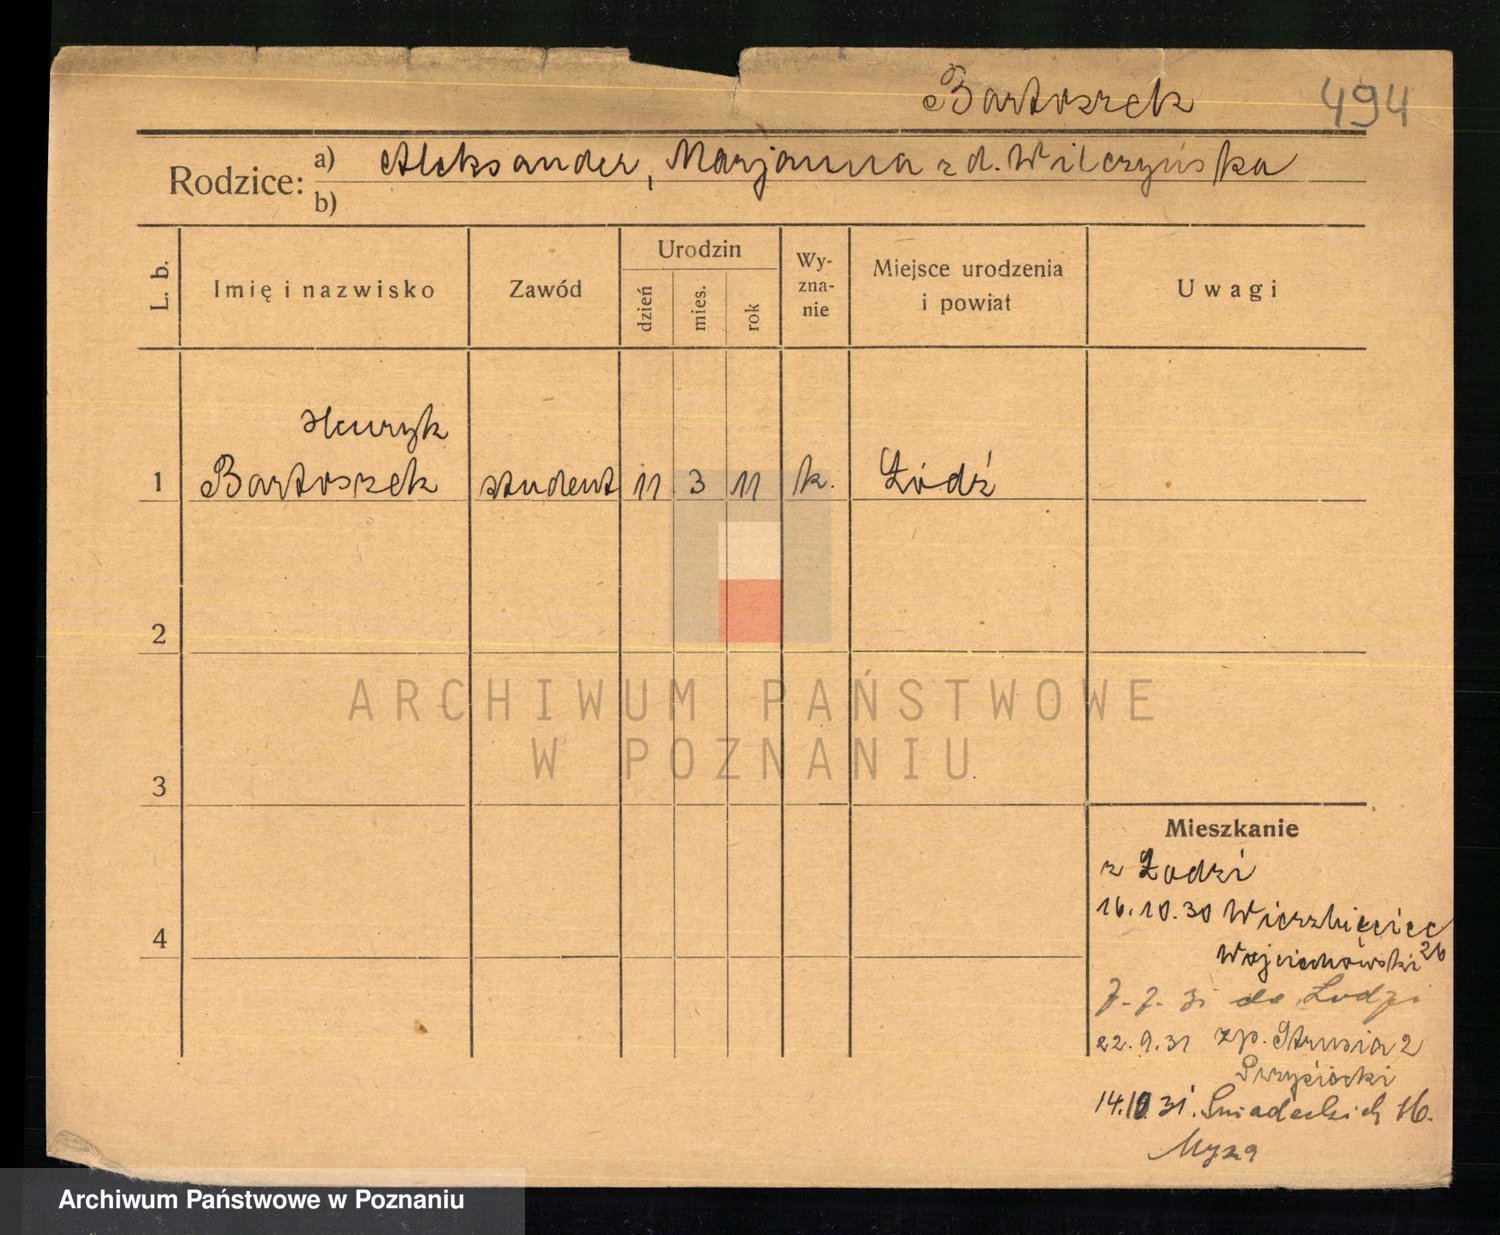 Bartoszek 494
Rodzice: a) Aleksander, Marjanna z d. Wilczyńska
b)
L. b. Imię i nazwisko Zawód Urodzin dzień mies. rok Wy-zna-nie Miejsce urodzenia i powiat Uwagi
Henryk
1 Bartoszek student 11 3 11 k. Łódź
2
ARCHIWUM PAŃSTWOWE
W POZNANIU
3
Mieszkanie
z Łodzi
16.10.30 Wierzbięcice
Wojciechowski 26
7. 7. 31 do Łodzi
22. 9. 31 zp. Strusia 2
4
14.10 31. Śniadeckich 16.
Archiwum Państwowe w Poznaniu